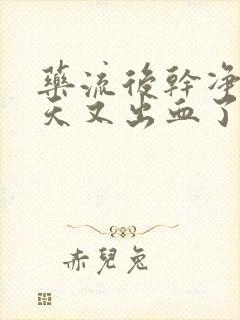 藥流後幹凈
天又出血了
赤兒兔